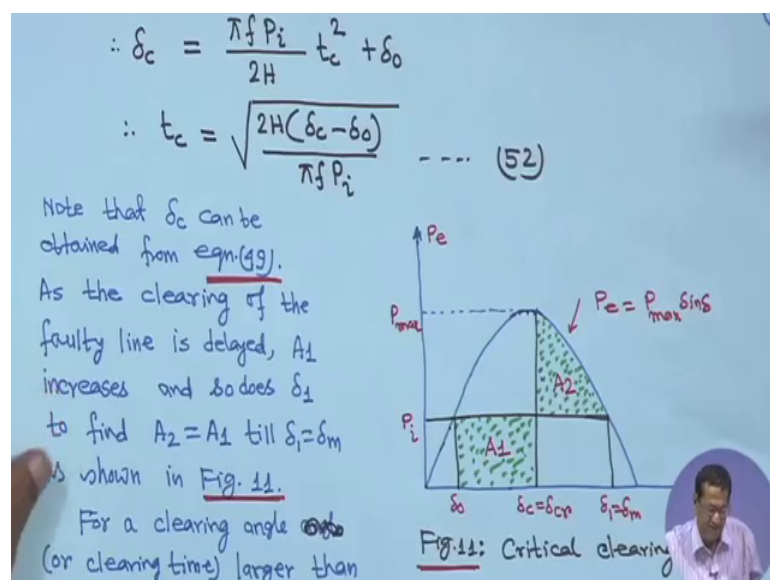 ∴ δc = πf Pi / 2H tc² + δ0
∴ tc = √(2H(δc - δ0) / πf Pi) ---- (52)
Note that δc can be
obtained from eqn.(49).
As the clearing of the
faulty line is delayed, A1
increases and so does δ1
to find A2 = A1 till δ1=δm
shown in Fig. 11.
For a clearing angle
(or clearing time) larger than
Pe
Pmax
Pe = Pmax sinδ
A2
Pi
A1
δ0 δc=δcr δ1=δm
Fig.11: Critical clearing